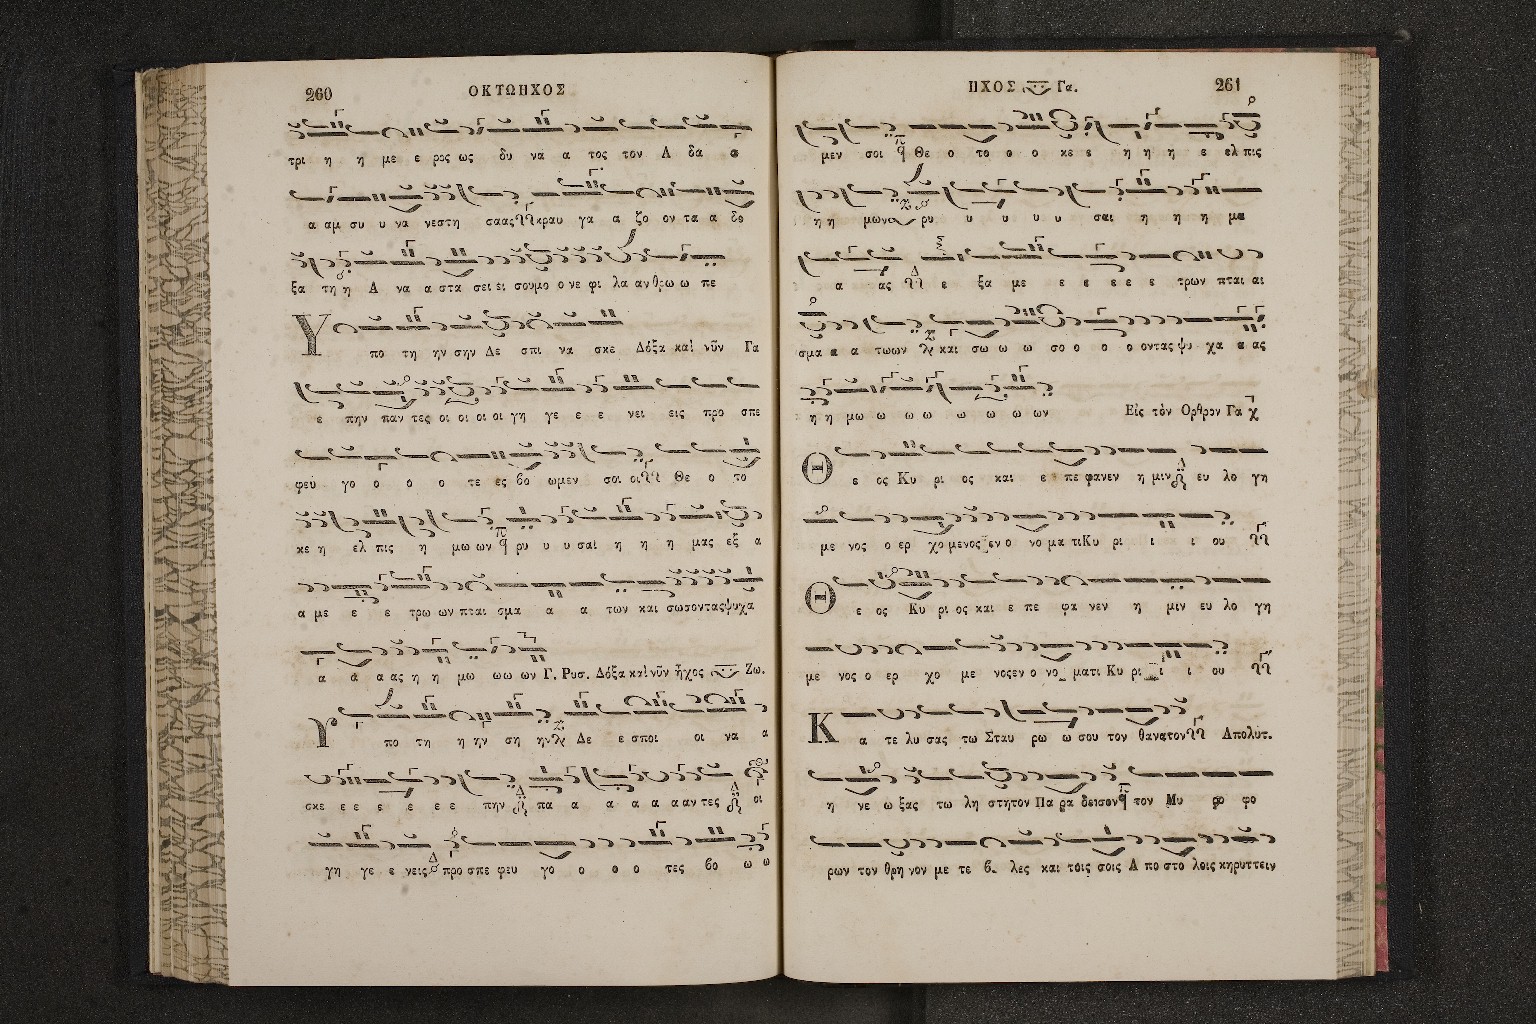 260 ΟΚΤΩΗΧΟΣ
τρι η η με ε ρος ως δυ να α τος τον Α δα α
α αμ συ υ να νεστη σαας κραυ γα α ζο ον τα α δο
ξα τη η Α να α στα σει ει σουμο ο νε φι λα αν θρω ω πε
Υ πο τη ην σην Δε σπι να σκε Δόξα καὶ νῦν Γα
ε πην παν τες οι οι οι οι γη γε ε ε νει εις προ σπε
φευ γο ο ο ο τε ες βο ωμεν σοι οι Θε ο το
κε η ελ πις η μω ων ρυ υ υ σαι η η η μας εξ α
α με ε ε τρω ων πται σμα α α α των και σωσοντας ψυχα
α α α ας η η μω ωω ων Γ. Ρυσ. Δόξα καὶ νῦν ἦχος Ζω.
Υ πο τη η ην ση ην Δε ε σποι οι να α
σκε ε ε ε ε ε ε πην πα α α α α α αν τες οι
γη γε ε νεις προ σπε φευ γο ο ο ο τες βο ω ω
ΗΧΟΣ Γα. 261
μεν σοι Θε ο το ο ο κε ε η η η ε ελ πις
η η μων ρυ υ υ υ υ σαι η η η μα
α ας ε ξα με ε ε ε ε ε τρων πται αι
σμα α α τωων και σω ω ω σο ο ο ο οντας ψυ χα α ας
η η μω ω ω ω ω ω ω ω ων Εἰς τὸν Ορθρον Γα
Θ ε ος Κυ ρι ος και ε πε φανεν η μιν ευ λο γη
με νος ο ερ χο μενος εν ο νο μα τι Κυ ρι ι ι ου
Θ ε ος Κυ ρι ος και ε πε φα νεν η μιν ευ λο γη
με νος ο ερ χο με νος εν ο νο ματι Κυ ρι ι ι ου
Κ α τε λυ σας τω Σταυ ρω ω σου τον θανατον Απολυτ.
η νε ω ξας τω λη στη τον Πα ρα δεισον τον Μυ ρο φο
ρων τον θρη νον με τε β. λες και τοις σοις Α πο στο λοις κηρυττειν